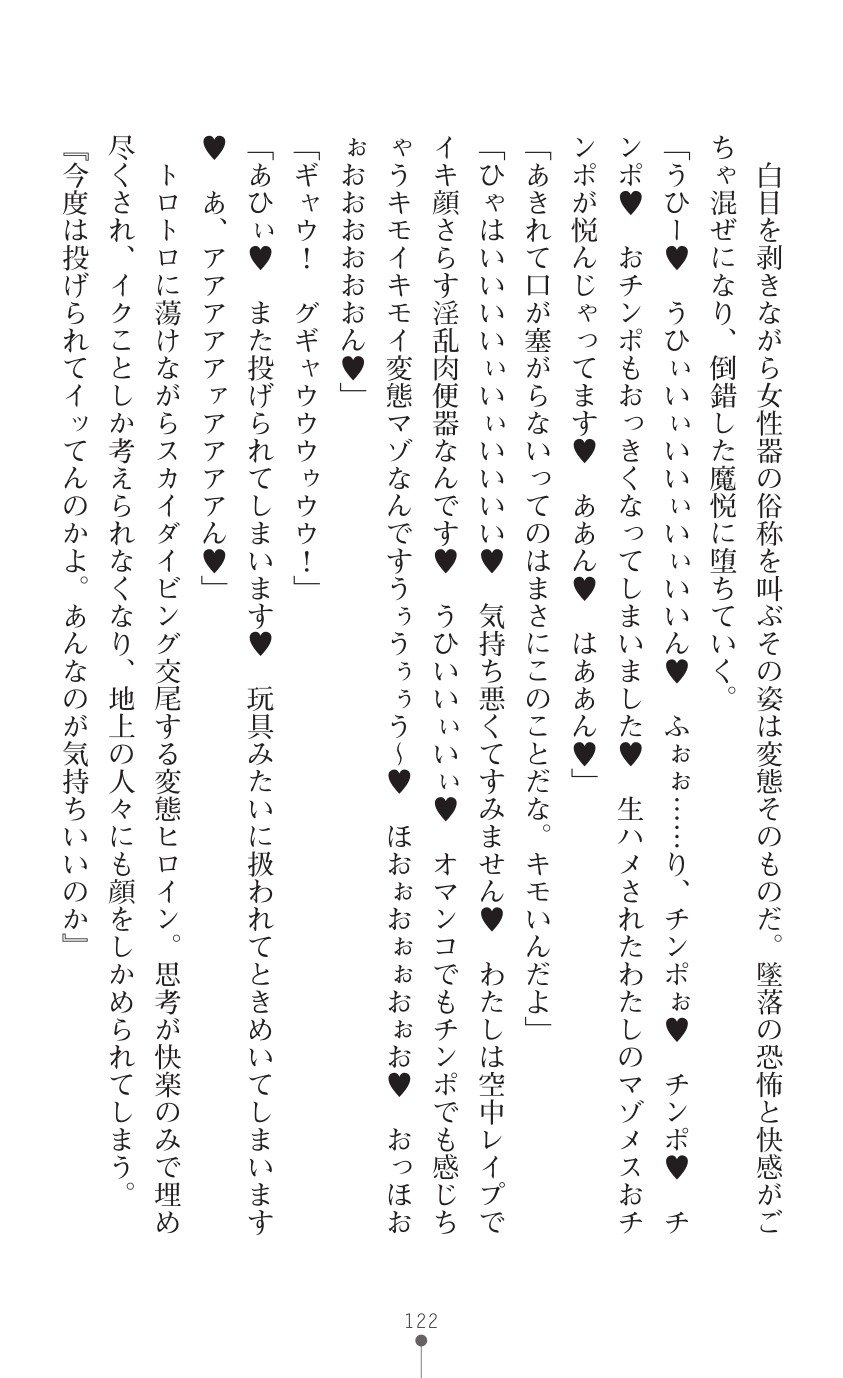 白目を剥きながら女性器の俗称を叫ぶその姿は変態そのものだ。墜落の恐怖と快感がご
ちゃ混ぜになり、倒錯した魔悦に堕ちていく。
「うひー♥　うひぃいぃいいぃいぃいいん♥　ふぉぉ……り、チンポぉ♥　チンポ♥　チ
ンポ♥　おチンポもおっきくなってしまいました♥　生ハメされたわたしのマゾメスおチ
ンポが悦んじゃってます♥　ああん♥　はああん♥」
「あきれて口が塞がらないってのはまさにこのことだな。キモいんだよ」
「ひゃはいいいいぃいぃいいいい♥　気持ち悪くてすみません♥　わたしは空中レイプで
イキ顔さらす淫乱肉便器なんです♥　うひいいぃいぃ♥　オマンコでもチンポでも感じち
ゃうキモイキモイ変態マゾなんですうぅうぅぅう～♥　ほおぉおぉぉおぉお♥　おっほお
ぉおおおおおおん♥」
「ギャウ！　グギャウウウゥウウ！」
「あひぃ♥　また投げられてしまいます♥　玩具みたいに扱われてときめいてしまいます
♥　あ、アアアアアァアアアアん♥」
　トロトロに蕩けながらスカイダイビング交尾する変態ヒロイン。思考が快楽のみで埋め
尽くされ、イクことしか考えられなくなり、地上の人々にも顔をしかめられてしまう。
『今度は投げられてイッてんのかよ。あんなのが気持ちいいのか』
122